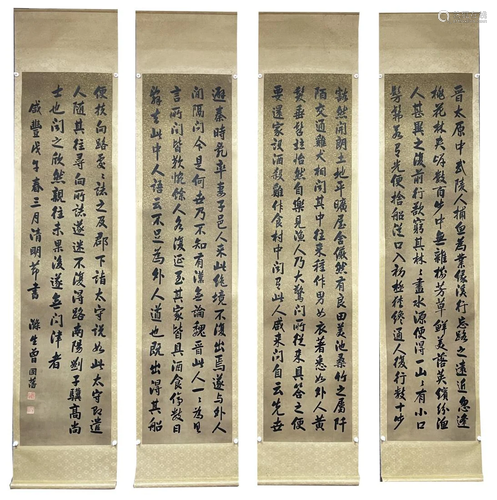 晉太原中武陵人捕魚為業緣溪行忘路之遠近忽逢
桃花林夾岸數百步中無雜樹芳草鮮美落英繽紛漁
人甚異之復前行欲窮其林々盡水源便得一山々有小口
髣髴若有光便捨船從口入初極狹纔通人復行數十步
豁然開朗土地平曠屋舍儼然有良田美池桑竹之屬阡
陌交通雞犬相聞其中往來種作男女衣著悉如外人黃
髮垂髫並怡然自樂見漁人乃大驚問所從來具答之便
要還家設酒殺雞作食村中聞有此人咸來問自云先世
避秦時亂率妻子邑人來此絕境不復出焉遂與外人
間隔問今是何世乃不知有漢無論魏晉此人一々為具
言所聞皆歎惋餘人各復延至其家皆具酒食停數日
辭去此中人語云不足為外人道也既出得其船
便扶向路處々誌之及郡下詣太守說如此太守即遣
人隨其往尋向所誌遂迷不復得路南陽劉子驥高尚
士也聞之欣然親往未果後遂無問津者
咸豐戊午春三月清明節書
滌生曾國藩